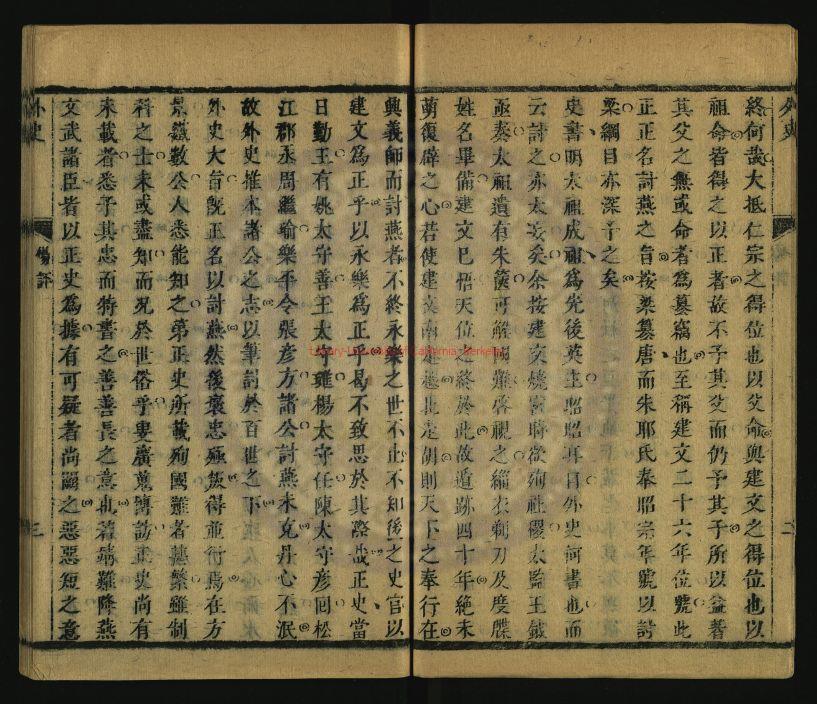 終何哉大抵仁宗之得位也以父命與建文之得位也以
祖命皆得之以正者故不予其父而仍予其子所以益著
其父之無或命者爲篡竊也至稱建文二十六年位號此
正正名討燕之旨按梁篡唐而朱耶氏奉昭宗年號以討
梁綱目亦深予之矣
史書明太祖成祖爲先後英主昭昭耳目外史何書也而
云討之亦太妄矣余按建文燒宮時欲殉社稷太監王鉞
亟奏太祖遺有朱篋可解國難啓視之緇衣剃刀及度牒
姓名畢備建文已悟天位之終於此故遁跡四十年絕未
萌復辟之心若使建文南走越北走胡則天下之奉行在
興義師而討燕者不終永樂之世不止不知後之史官以
建文爲正乎以永樂爲正乎曷不致思於其際哉正史當
日勤王有姚太守善王太守璡楊太守任陳太守彥回松
江郡丞周繼瑜樂平令張彥方諸公討燕未克丹心不泯
故外史推本諸公之志以筆討於百世之下
外史大旨旣正名以討燕然後褒忠殛叛得並行焉在方
景鐵數公人悉能知之第正史所載殉國難者甚繁雖制
科之士未或盡知而况於世俗乎叟廣蒐博訪正史尚有
未載者悉予其忠而特書之善善長之意也若靖難降燕
文武諸臣者以正史爲據有可疑者尚闕之惡惡短之意
外史
三
二
Library-University of California, Berkeley